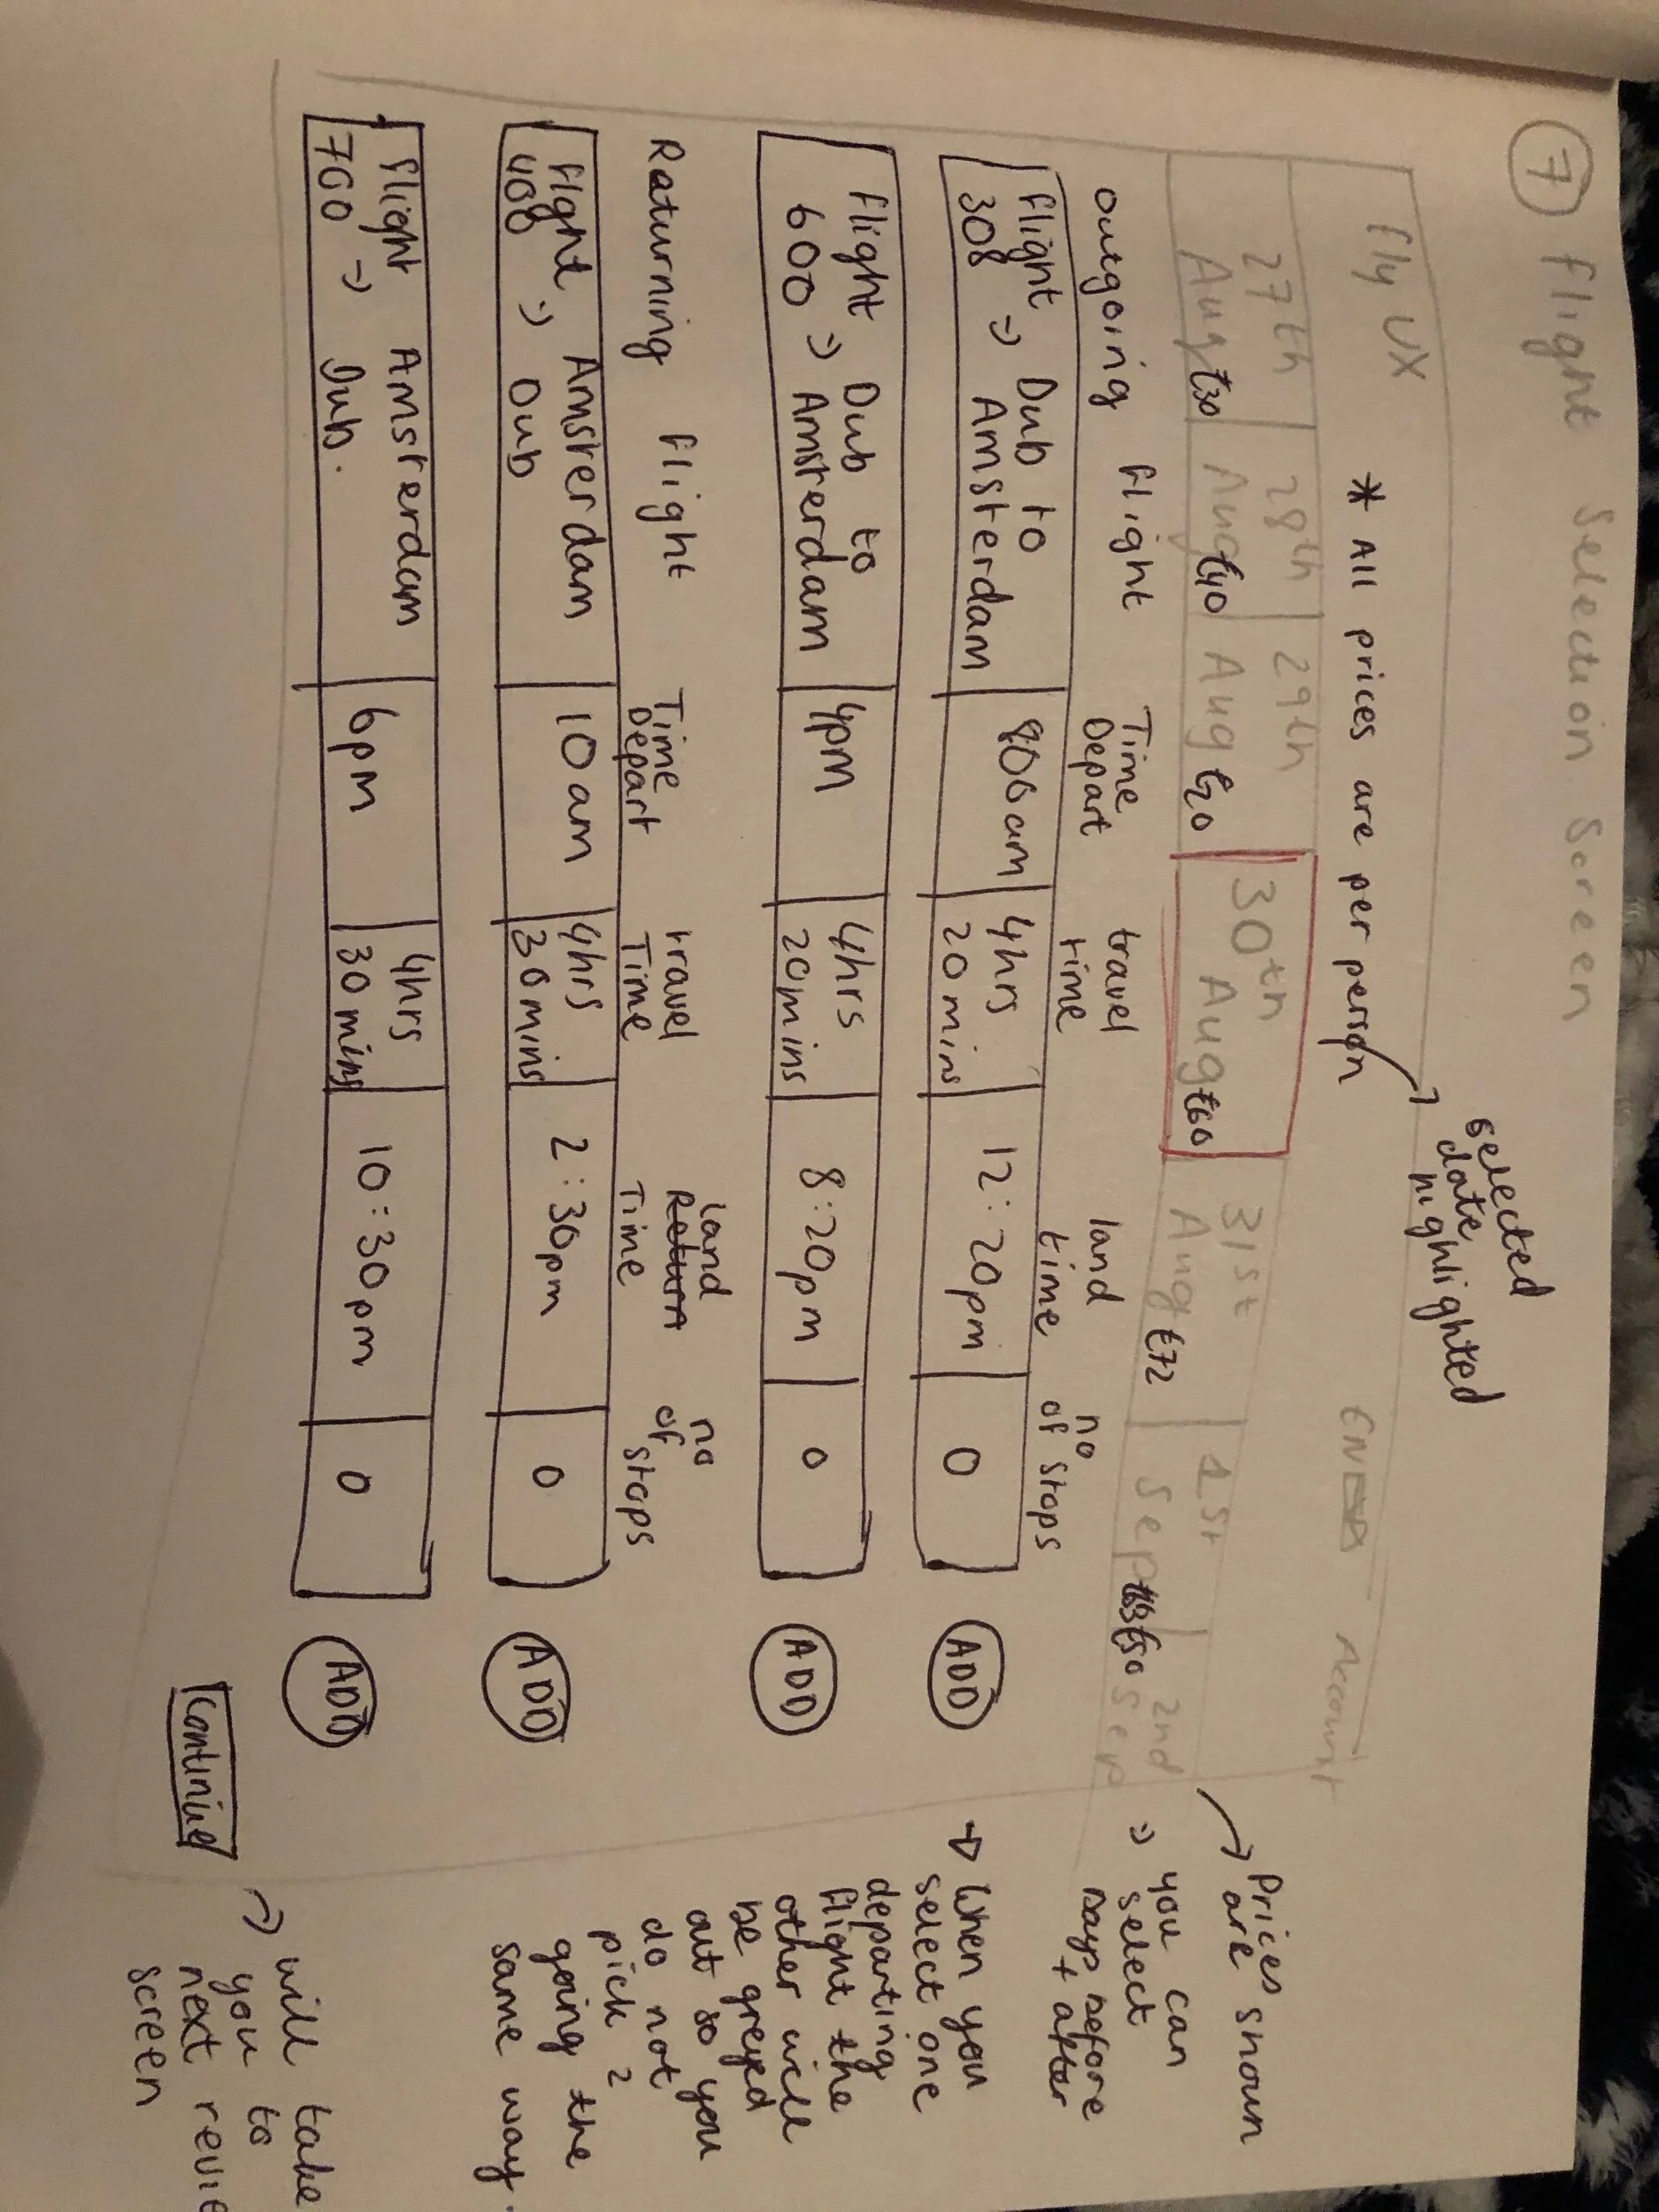 7 Flight Selection Screen
selected
date
highlighted
Fly UX
* All prices are per person
Account
27th
Aug €30
28th
Aug €40
29th
Aug
30th
Aug €60
31st
Aug €72
1st
Sep
2nd
Sep
Prices
are shown
you can
select
days before
+ after
outgoing Flight
Time
Depart
travel
time
land
time
no
of stops
Flight Dub to
308 Amsterdam
800am
4hrs
20mins
12:20pm
0
ADD
Flight Dub to
600 Amsterdam
4pm
4hrs
20mins
8:20pm
0
ADD
When you
select one
departing
flight the
other will
be greyed
out so you
do not
pick 2
going the
same way.
Returning Flight
Time
Depart
travel
Time
land
Return
Time
no
of stops
Flight Amsterdam
408 Dub
10am
4hrs
30mins
2:30pm
0
ADD
Flight Amsterdam
700 Dub.
6pm
4hrs
30mins
10:30pm
0
ADD
Continue
will take
you to
next revie
screen